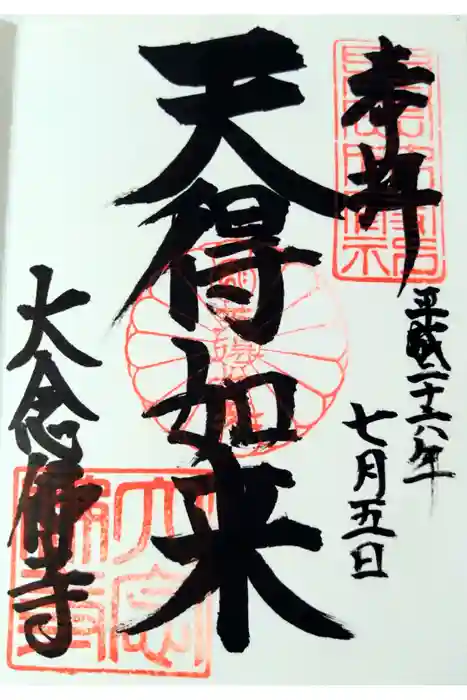 奉拝
平成二十六年
七月五日
天得如来
大念佛寺